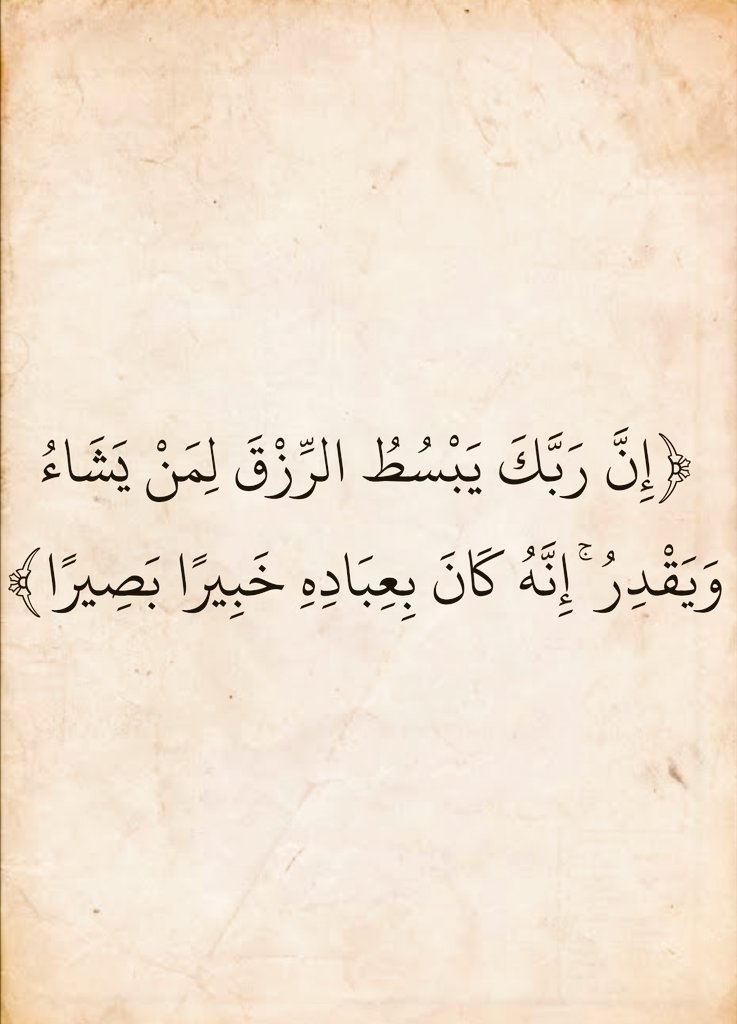 ﴿إِنَّ رَبَّكَ يَبْسُطُ الرِّزْقَ لِمَنْ يَشَاءُ
وَيَقْدِرُ ۚ إِنَّهُ كَانَ بِعِبَادِهِ خَبِيرًا بَصِيرًا﴾